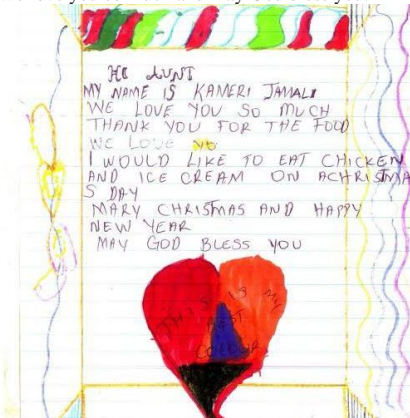 HI AUNT
MY NAME IS KAMERI JAMALI
WE LOVE YOU SO MUCH
THANK YOU FOR THE FOOD
WE LOVE YO
I WOULD LIKE TO EAT CHICKEN
AND ICE CREAM ON ACHRISTMA
S DAY
MARY CHRISTMAS AND HAPPY
NEW YEAR
MAY GOD BLESS YOU
THIS IS MY
BEST
COLOUR